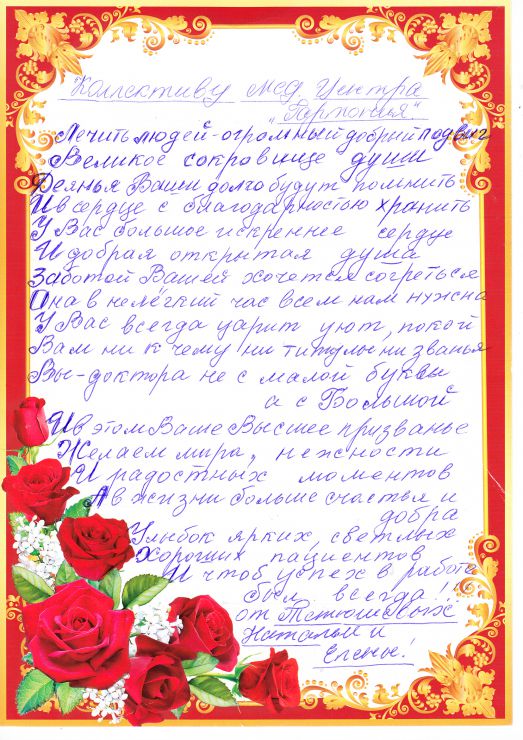 Коллективу мед. Центра
"Гармония"
Лечить людей - огромный добрый подвиг
Великое сокровище души
Деянья Ваши долго будут помнить
И в сердце с благодарностью хранить
У Вас большое искреннее сердце
И добрая открытая душа
Заботой Вашей хочется согреться
Она в нелёгкий час всем нам нужна
У Вас всегда царит уют, покой
Вам ни к чему ни титулы ни званья
Вы - доктора не с малой буквы
а с Большой
И в этом Ваше Высшее призванье
Желаем мира, нежности
И радостных моментов
А в жизни больше счастья и
добра
Улыбок ярких, светлых
Хороших пациентов
И чтоб успех в работе
был всегда!!
от Тетюшевых
Натальи и
Елены!